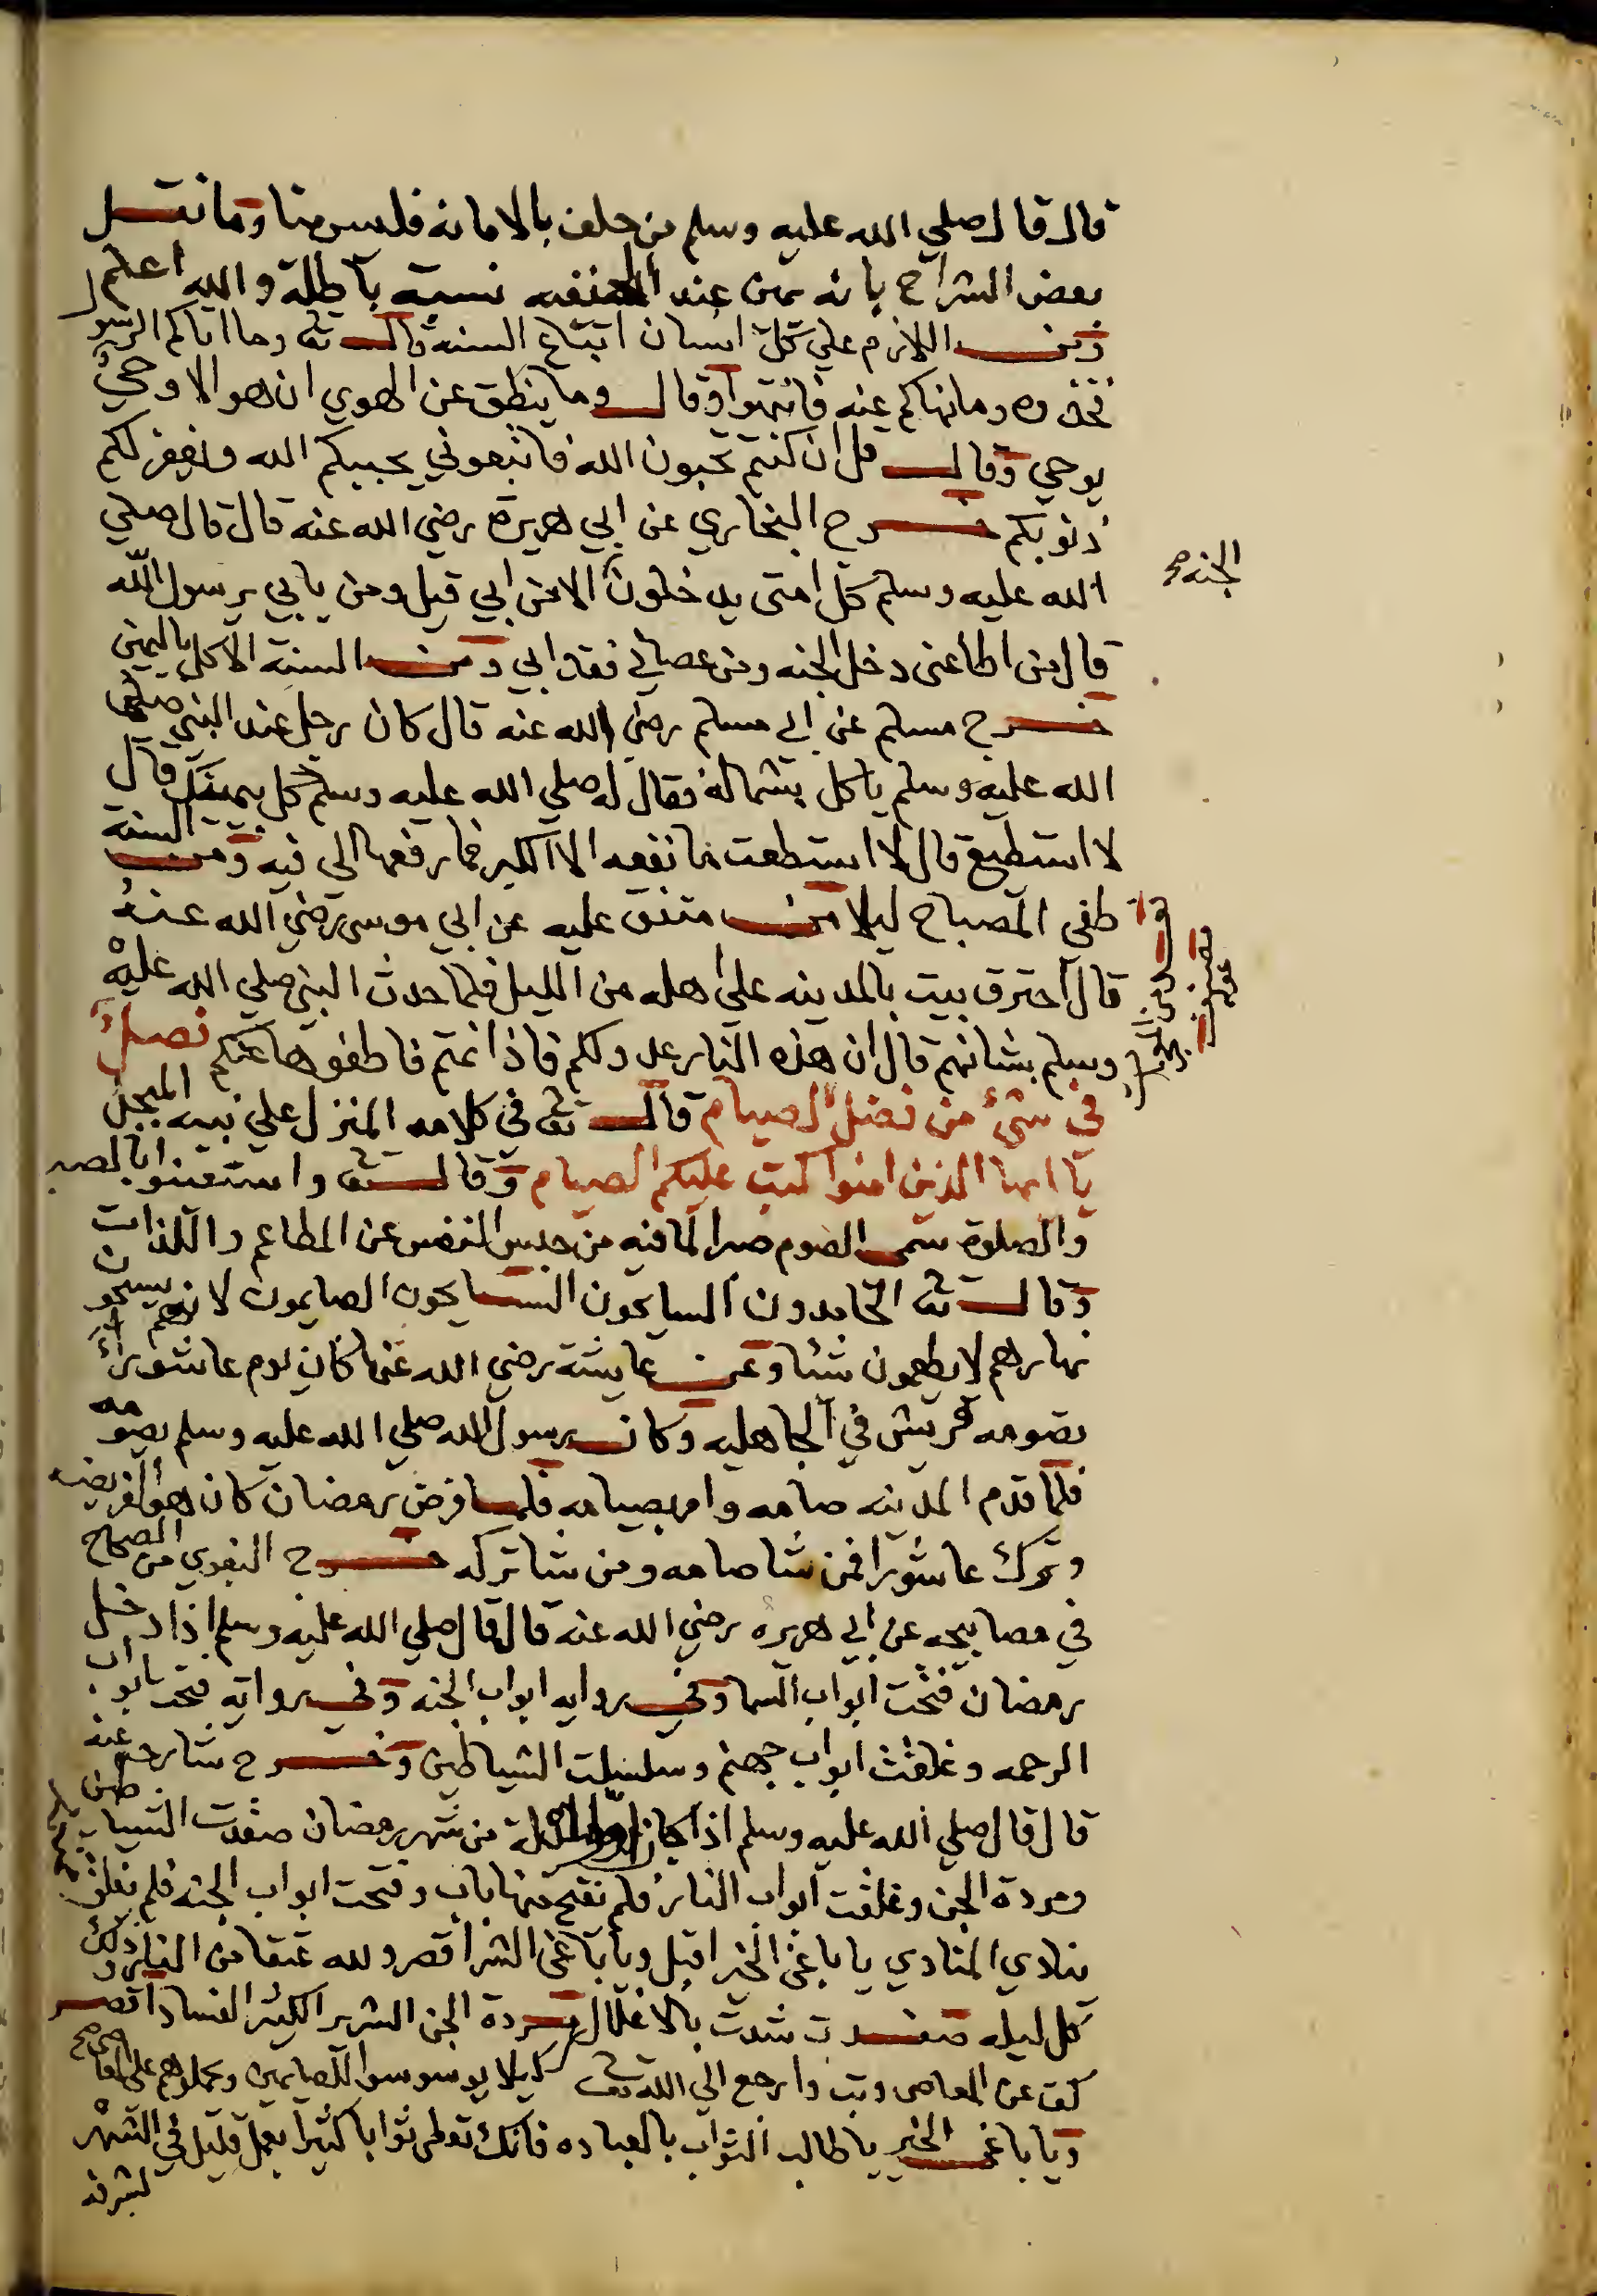 قال قال صلي الله عليه وسلم من حلف بالامانه فليس منا وما نقل
بعض الشراح بانه يمين عند الحنفيه نسبة باطلة والله اعلم
ومن اللازم علي كل انسان اتباع السنه قال تعالى وما اتاكم الرسول
فخذوه وما نهاكم عنه فانتهوا وقال وما ينطق عن الهوي ان هو الا وحيٌ
يوحي وقال قل ان كنتم تحبون الله فاتبعوني يحببكم الله ويغفر لكم
ذنوبكم خرج البخاري عن ابي هريرة رضي الله عنه قال قال صلي
الله عليه وسلم كل امتى يدخلون الا من ابي قيل ومن يابي يرسول الله
الجنه صح
قال من اطاعنى دخل الجنه ومن عصاني فقد ابي ومن السنة الاكل باليمين
خرج مسلم عن ابي مسلم رضي الله عنه قال كان رجل عند النبي صلي
الله عليه وسلم ياكل بشماله فقال له صلي الله عليه وسلم كل بيمينك قال
لا استطيع قال لا استطعت ما نفعه الا الكبر فما رفعها الي فيه ومن السنة
طفي المصباح ليلا متفق عليه عن ابي موسى رضي الله عنهُ
قال احترق بيت بالمدينه على اهله من الليل فلما حدث النبي صلي الله عليهْ
وسلم بشانهم قال ان هذه النار عدو لكم فاذا نمتم فاطفوها عنكم فصلٌ
في شئ من فضل الصيام قال تعالى في كلامه المنزل علي نبيه المبجل
يا ايها الذين امنوا كتب عليكم الصيام وقال تعالى واستعينوا بالصبر
والصلوة سمى الصوم صبرا لما فيه من حبس النفس عن المطاعم واللذات
وقال تعالى الحامدون السايحون السايحون الصايمون لانهم يسيحون
نهارهم لا يطعمون شيئا وعن عايشة رضي الله عنها كان يوم عاشوراءَ
تصومه قريش في الجاهليه وكان رسول الله صلي الله عليه وسلم يصومه
فلما قدم المدينه صامه وامر بصيامه فلما فرض رمضان كان هو الفريضه
وترك عاشورا فمن شا صامه ومن شا تركه خرج البغوي من الصحاح
في مصابيحه عن ابي هريره رضي الله عنه قال قال صلي الله عليه وسلم اذا دخل
رمضان فتحت ابواب السما وفي روايه ابواب الجنه وفي روايه فتحت ابواب
الرحمه وغلقت ابواب جهنم وسلسلت الشياطين وخرج شارحه عنه
قال قال صلي الله عليه وسلم اذا كان اول ليلة من شهر رمضان صفدت الشياطين
ومردة الجن وغلقت ابواب النار فلم يفتح منها باب وفتحت ابواب الجنه فلم يغلق
ينادي المنادي يا باغى الخير اقبل ويا باغى الشر اقصر ولله عتقا من النار وذلك
كل ليله صفدت شدت بالاغلال مردة الجن الشرير الكثير الفساد اقصر
كف عن المعاصى وتب وارجع الي الله تعالى كيلا يوسوسوا للصايمين
ويا باغى الخير يا طالب الثواب بالعباده فانك تعطى ثوابا كثيرا بعمل قليل في الشهر
لشرفه